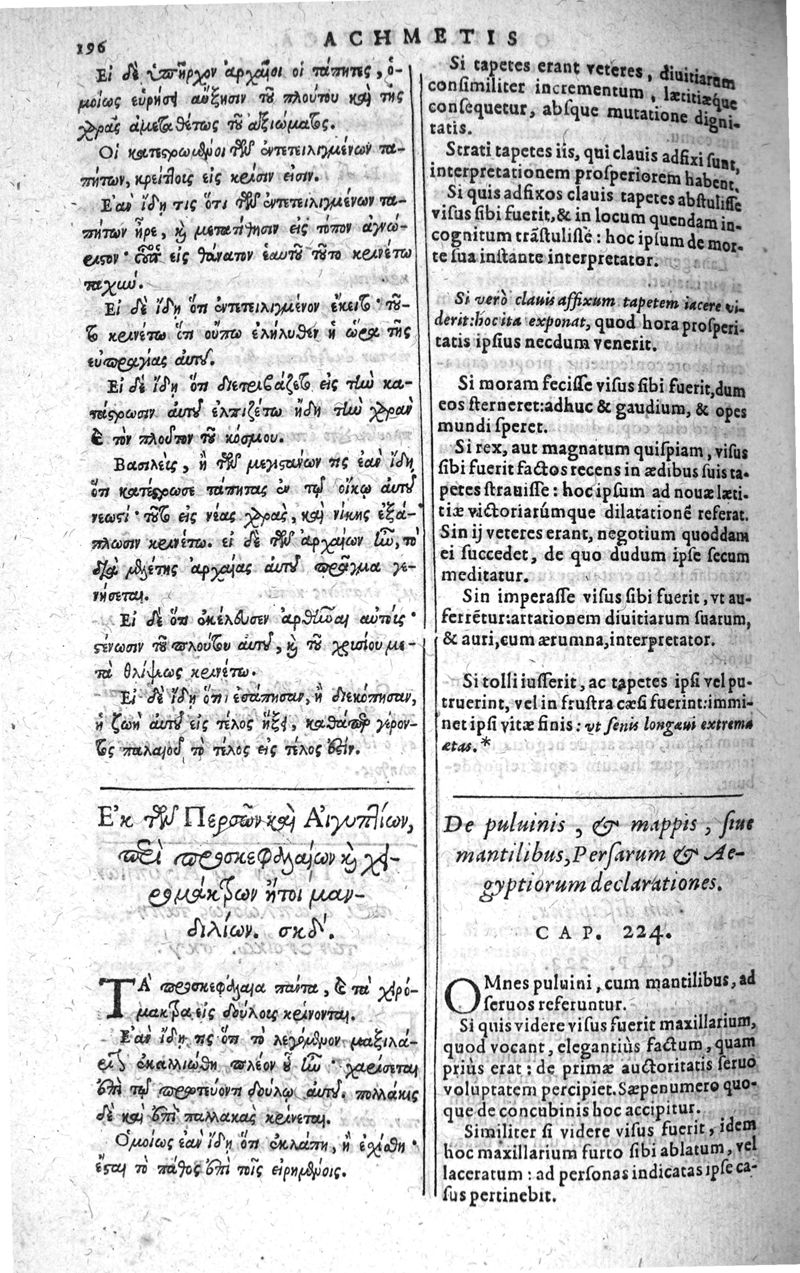 196
ACHMETIS
Εἰ δὲ ὑπῆρχον ἀρχαῖοι οἱ τάπητες, ὁ-
μοίως εὑρήσει αὔξησιν τοῦ πλούτου καὶ τῆς
χαρᾶς ἀμεταθέτως τοῦ ἀξιώματος.
Οἱ κατεστρωμένοι τῶν ἐντετειλιγμένων τα-
πήτων, κρείττοις εἰς κρίσιν εἰσιν.
Ἐὰν ἴδῃ τις ὅτι τῶν ἐντετειλιγμένων τα-
πήτων ἦρε, καὶ μετατήθησιν εἰς τόπον ἀγνώ-
ριστον· εἰς θάνατον ἑαυτοῦ τοῦτο κρινέτω
ταχύ.
Εἰ δὲ ἴδῃ ὅτι ἐντετειλιγμένον ἔκειτο· τοῦ-
το κρινέτω ὅτι οὔπω ἐλήλυθεν ἡ ὥρα τῆς
εὐπραγίας αὐτοῦ.
Εἰ δὲ ἴδῃ ὅτι διετριβάζετο εἰς τὴν κα-
τάστρωσιν αὐτοῦ ἐλπιζέτω ἤδη τὴν χαρὰν
καὶ τὸν πλοῦτον τοῦ κόσμου.
Βασιλεὺς, ἢ τῶν μεγιστάνων τις ἐὰν ἴδῃ
ὅτι κατέστρωσε τάπητας ἐν τῷ οἴκῳ αὐτοῦ
νεωστί· τοῦτο εἰς νέας χαρᾶς, καὶ νίκης ἐξά-
πλωσιν κρινέτω. εἰ δὲ τῶν ἀρχαίων ἦν, τὸ
διὰ μελέτης ἀρχαίας αὐτοῦ πρᾶγμα γε-
νήσεται.
Εἰ δὲ ὅτι ἐκέλευσεν ἀρθῆναι αὐτοὺς·
στένωσιν τοῦ πλούτου αὐτοῦ, καὶ τοῦ χρυσίου με-
τὰ θλίψεως κρινέτω.
Εἰ δὲ ἴδῃ ὅτι ἐσάπησαν, ἢ διεκόπησαν,
ἡ ζωὴ αὐτοῦ εἰς τέλος ἥξει, καθάπερ γέρον-
τος παλαιοῦ τὸ τέλος εἰς τέλος ἐστίν.
Ἐκ τῶν Περσῶν καὶ Αἰγυπτίων,
περὶ προσκεφαλαίων καὶ χει-
ρομάκτρων ἤτοι μαν-
διλίων. σκδʹ.
ΤΑ προσκεφάλαια πάντα, καὶ τὰ χειρό-
μακτρα εἰς δούλους κρίνονται.
Ἐὰν ἴδῃ τις ὅτι τὸ λεγόμενον μαξιλά-
ριον ἐκαλλιώθη πλέον οὗ ἦν· χαρίσεται
ἐπὶ τῷ πρωτεύοντι δούλῳ αὐτοῦ. πολλάκις
δὲ καὶ ἐπὶ παλλακὰς κρίνεται.
Ὁμοίως ἐὰν ἴδῃ ὅτι ἐκλάπη, ἢ ἐσχίσθη·
ἔσται τὸ πάθος ἐπὶ τοῖς εἰρημένοις.
Si tapetes erant veteres, diuitiarum
consimiliter incrementum, lætitiæque
consequetur, absque mutatione digni-
tatis.
Strati tapetes iis, qui clauis adfixi sunt,
interpretationem prosperiorem habent.
Si quis adfixos clauis tapetes abstulisse
visus sibi fuerit, & in locum quendam in-
cognitum trãstulisse: hoc ipsum de mor-
te sua instante interpretator.
Si verò clauis affixum tapetem iacere vi-
derit: hoc ita exponat, quod hora prosperi-
tatis ipsius necdum venerit.
Si moram fecisse visus sibi fuerit, dum
eos sterneret: adhuc & gaudium, & opes
mundi speret.
Si rex, aut magnatum quispiam, visus
sibi fuerit factos recens in ædibus suis ta-
petes strauisse: hoc ipsum ad nouæ læti-
tiæ victoriarúmque dilatationẽ referat.
Sin ij veteres erant, negotium quoddam
ei succedet, de quo dudum ipse secum
meditatur.
Sin imperasse visus sibi fuerit, vt au-
ferrẽtur: arctationem diuitiarum suarum,
& auri, cum ærumna, interpretator.
Si tolli iusserit, ac tapetes ipsi vel pu-
truerint, vel in frustra cæsi fuerint: immi-
net ipsi vitæ finis: vt senis longæui extrema
ætas.*
De puluinis, & mappis, siue
mantilibus, Persarum & Ae-
gyptiorum declarationes.
CAP. 224.
OMnes puluini, cum mantilibus, ad
seruos referuntur.
Si quis videre visus fuerit maxillarium,
quod vocant, elegantiùs factum, quam
priùs erat: de primæ auctoritatis seruo
voluptatem percipiet. Sæpenumero quo-
que de concubinis hoc accipitur.
Similiter si videre visus fuerit, idem
hoc maxillarium furto sibi ablatum, vel
laceratum: ad personas indicatas ipse ca-
sus pertinebit.